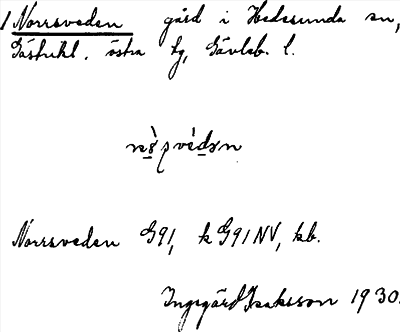 1 Norrsveden gård i Hedesunda sn,
Gästrikl. östra tg, Gävleb. l.
Norrsveden G91, k G91NV, kb.
Ingegärd Isaksson 1930.